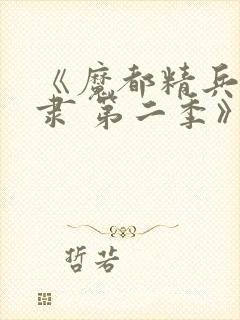 《魔都精兵
隶 第二季》
哲若